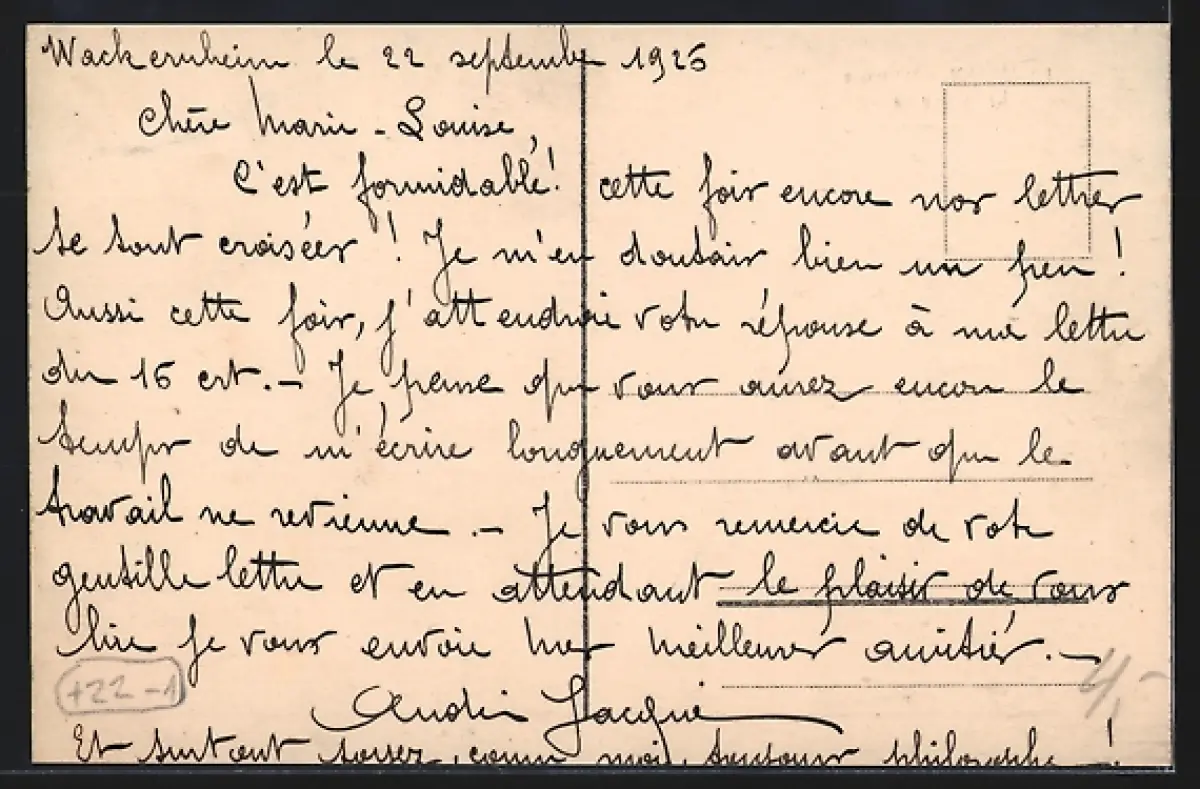 Wackernheim le 22 septembre 1926
Chère Marie-Louise,
C'est formidable! cette fois encore nos lettres
se sont croisées! Je m'en doutais bien un peu!
Aussi cette fois, j'attendrai votre réponse à ma lettre
du 16 crt. - Je pense que vous aurez encore le
temps de m'écrire longuement avant que le
travail ne revienne. - Je vous remercie de votre
gentille lettre et en attendant le plaisir de vous
lire je vous envoie mes meilleures amitiés. -
4,-
+22-1
André Jacquie
Et surtout soyez, comme moi, toujours philosophe - !